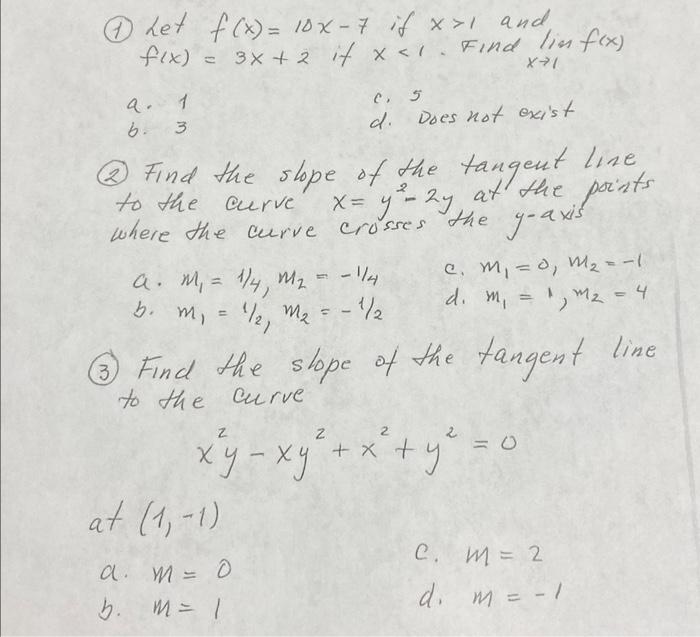 ① Let f(x) = 10x - 7 if x > 1 and
f(x) = 3x + 2 if x < 1. Find lim f(x)
x→1
a. 1
c. 5
b. 3
d. Does not exist
② Find the slope of the tangent line
to the curve x = y² - 2y at the points
where the curve crosses the y-axis
a. m₁ = 1/4, m₂ = -1/4
c. m₁ = 0, m₂ = -1
b. m₁ = 1/2, m₂ = -1/2
d. m₁ = 1, m₂ = 4
③ Find the slope of the tangent line
to the curve
x²y - xy² + x² + y² = 0
at (1, -1)
a. m = 0
c. m = 2
b. m = 1
d. m = -1